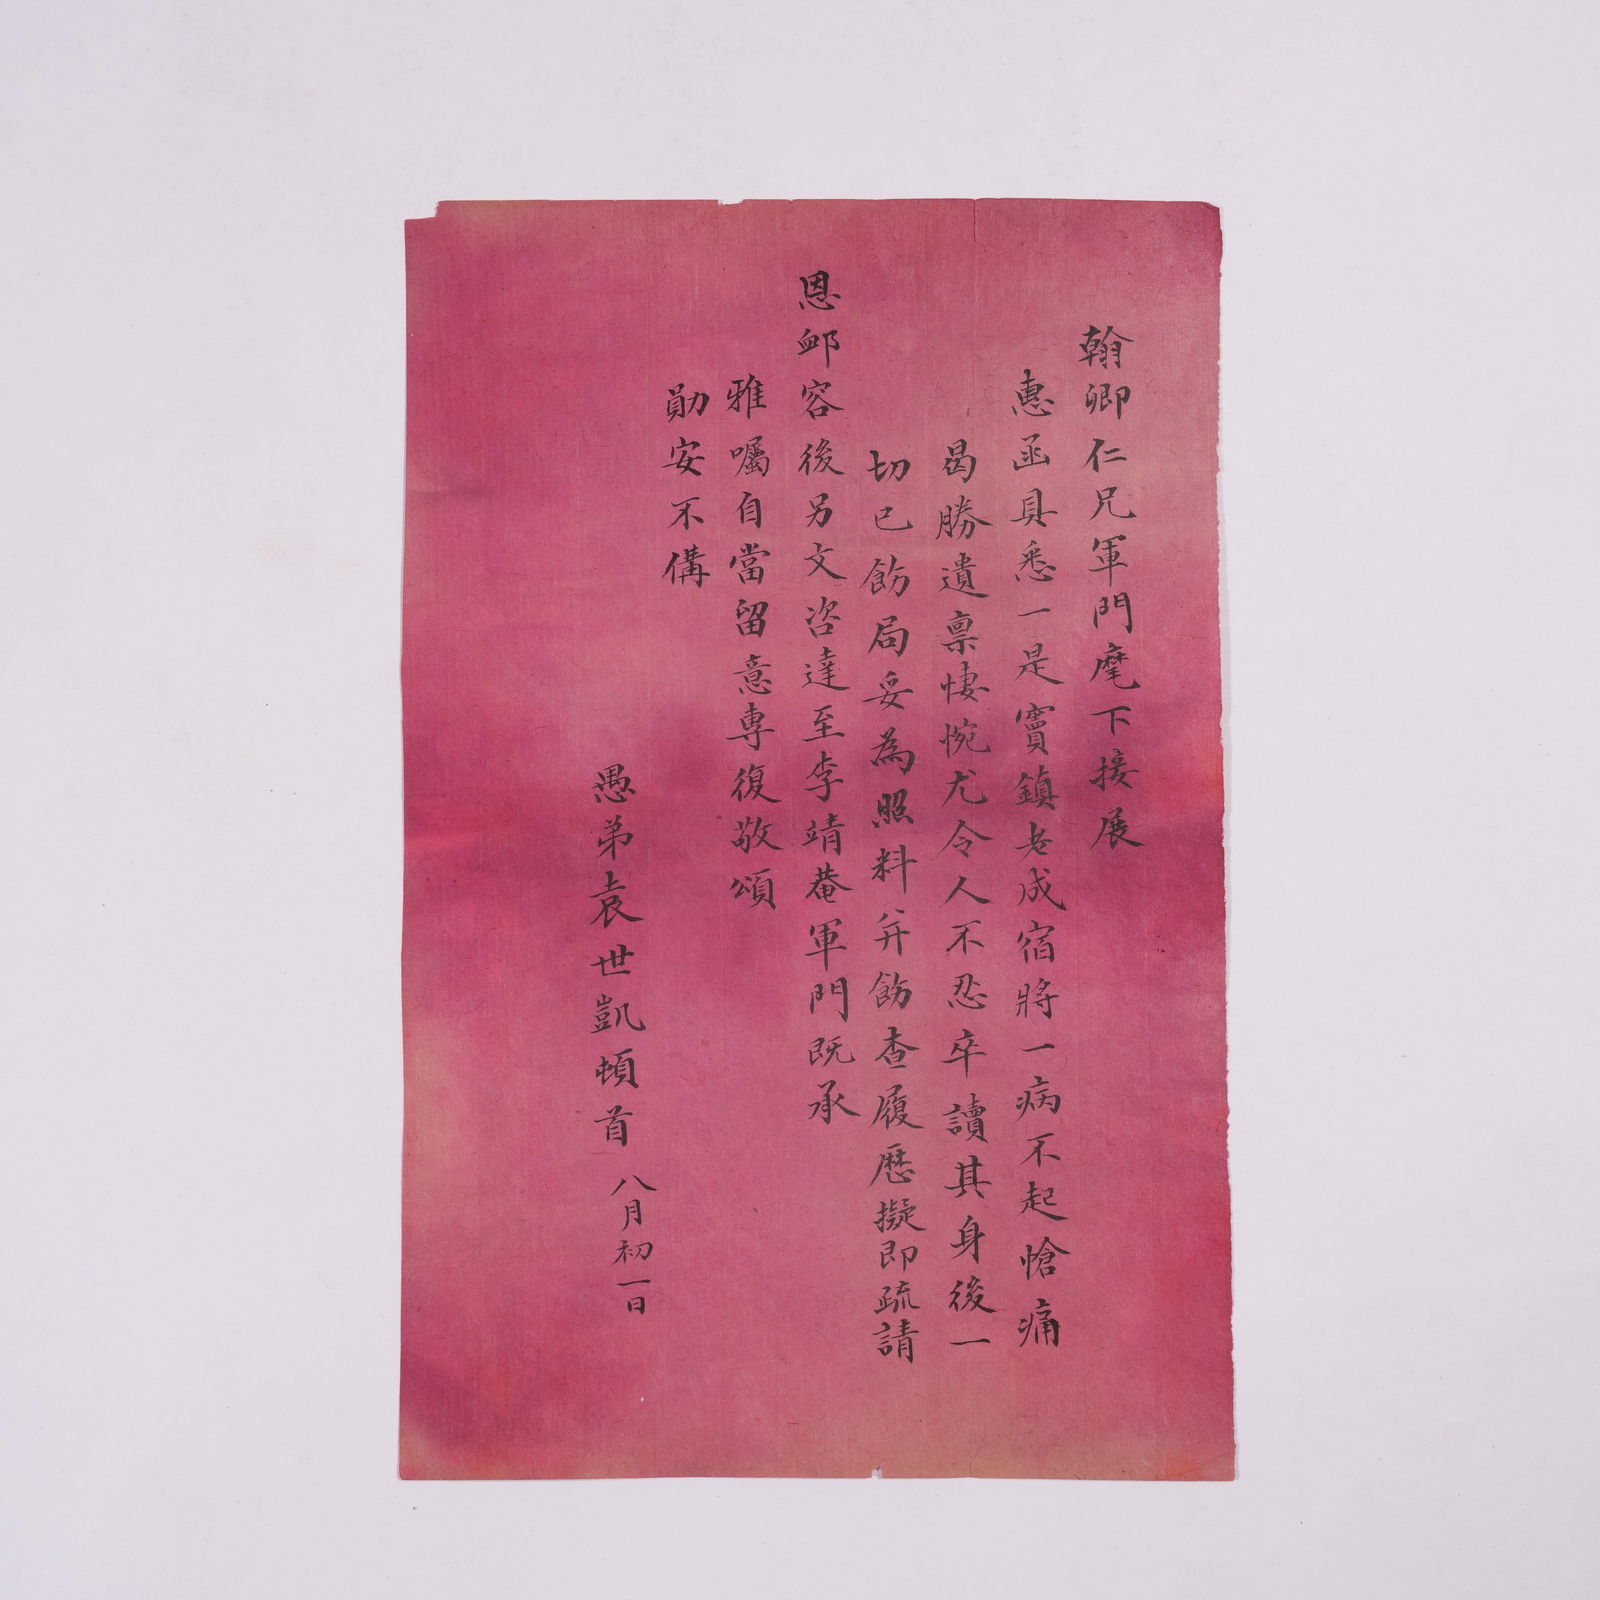 翰卿仁兄軍門麾下接展
惠函具悉一是竇鎮老成宿將一病不起愴痛
曷勝遺稟悽惋尤令人不忍卒讀其身後一
切已飭局妥為照料并飭查履歷擬即疏請
恩卹容後另文咨達至李靖菴軍門既承
雅囑自當留意專復敬頌
勛安不備
愚弟袁世凱頓首 八月初一日